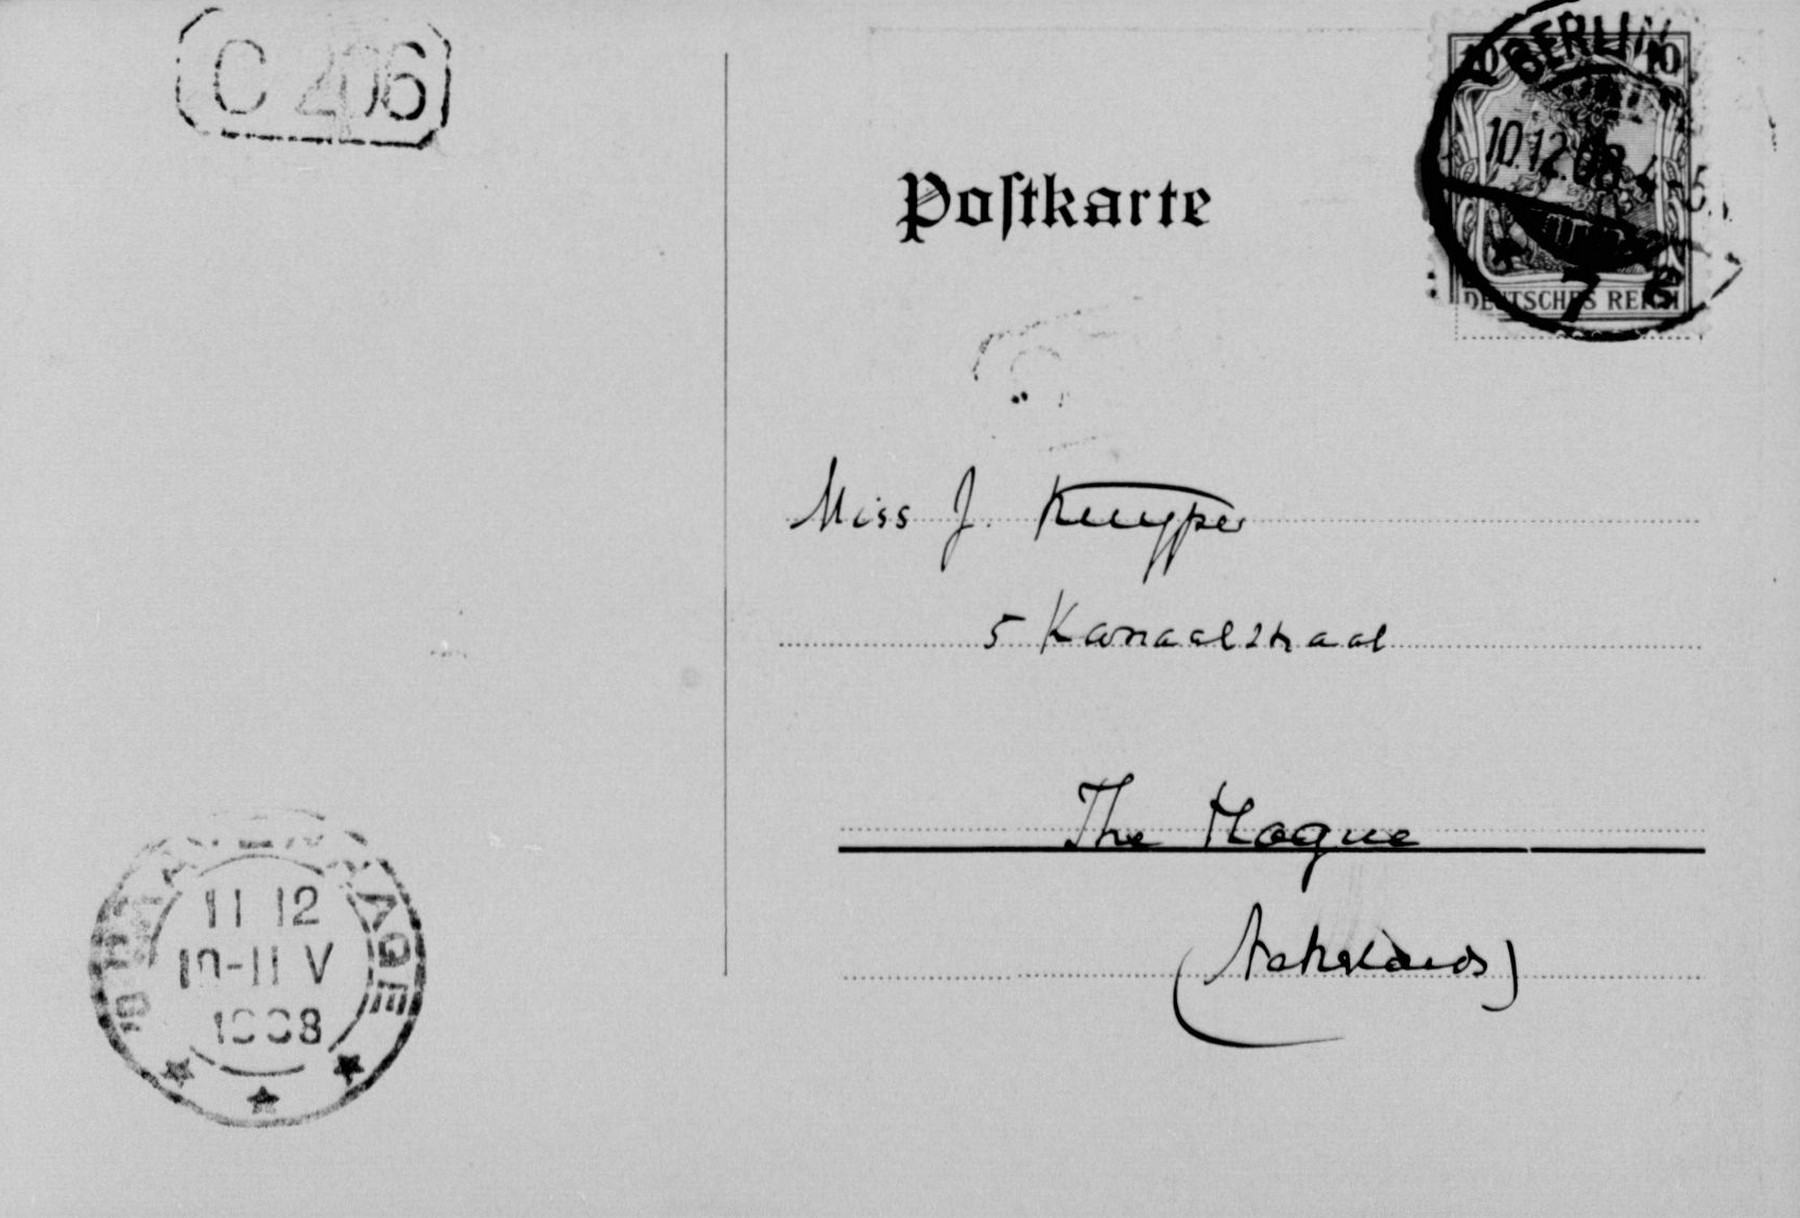 C 406
10 BERLIN 10
10.12.08. 4-5
7
DEUTSCHES REICH
Postkarte
Miss J. Kuyper
5 Kanaalstraat
The Hague
(Netherlands)
'S GRAVENHAGE
11 12
10-11 V
1908